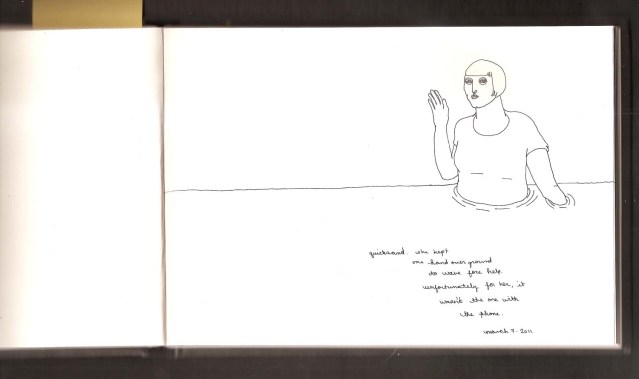 quicksand. she kept
one hand over ground
to wave fore help.
unfortunately for her, it
wasn't the one with
the phone.
march 7. 2011